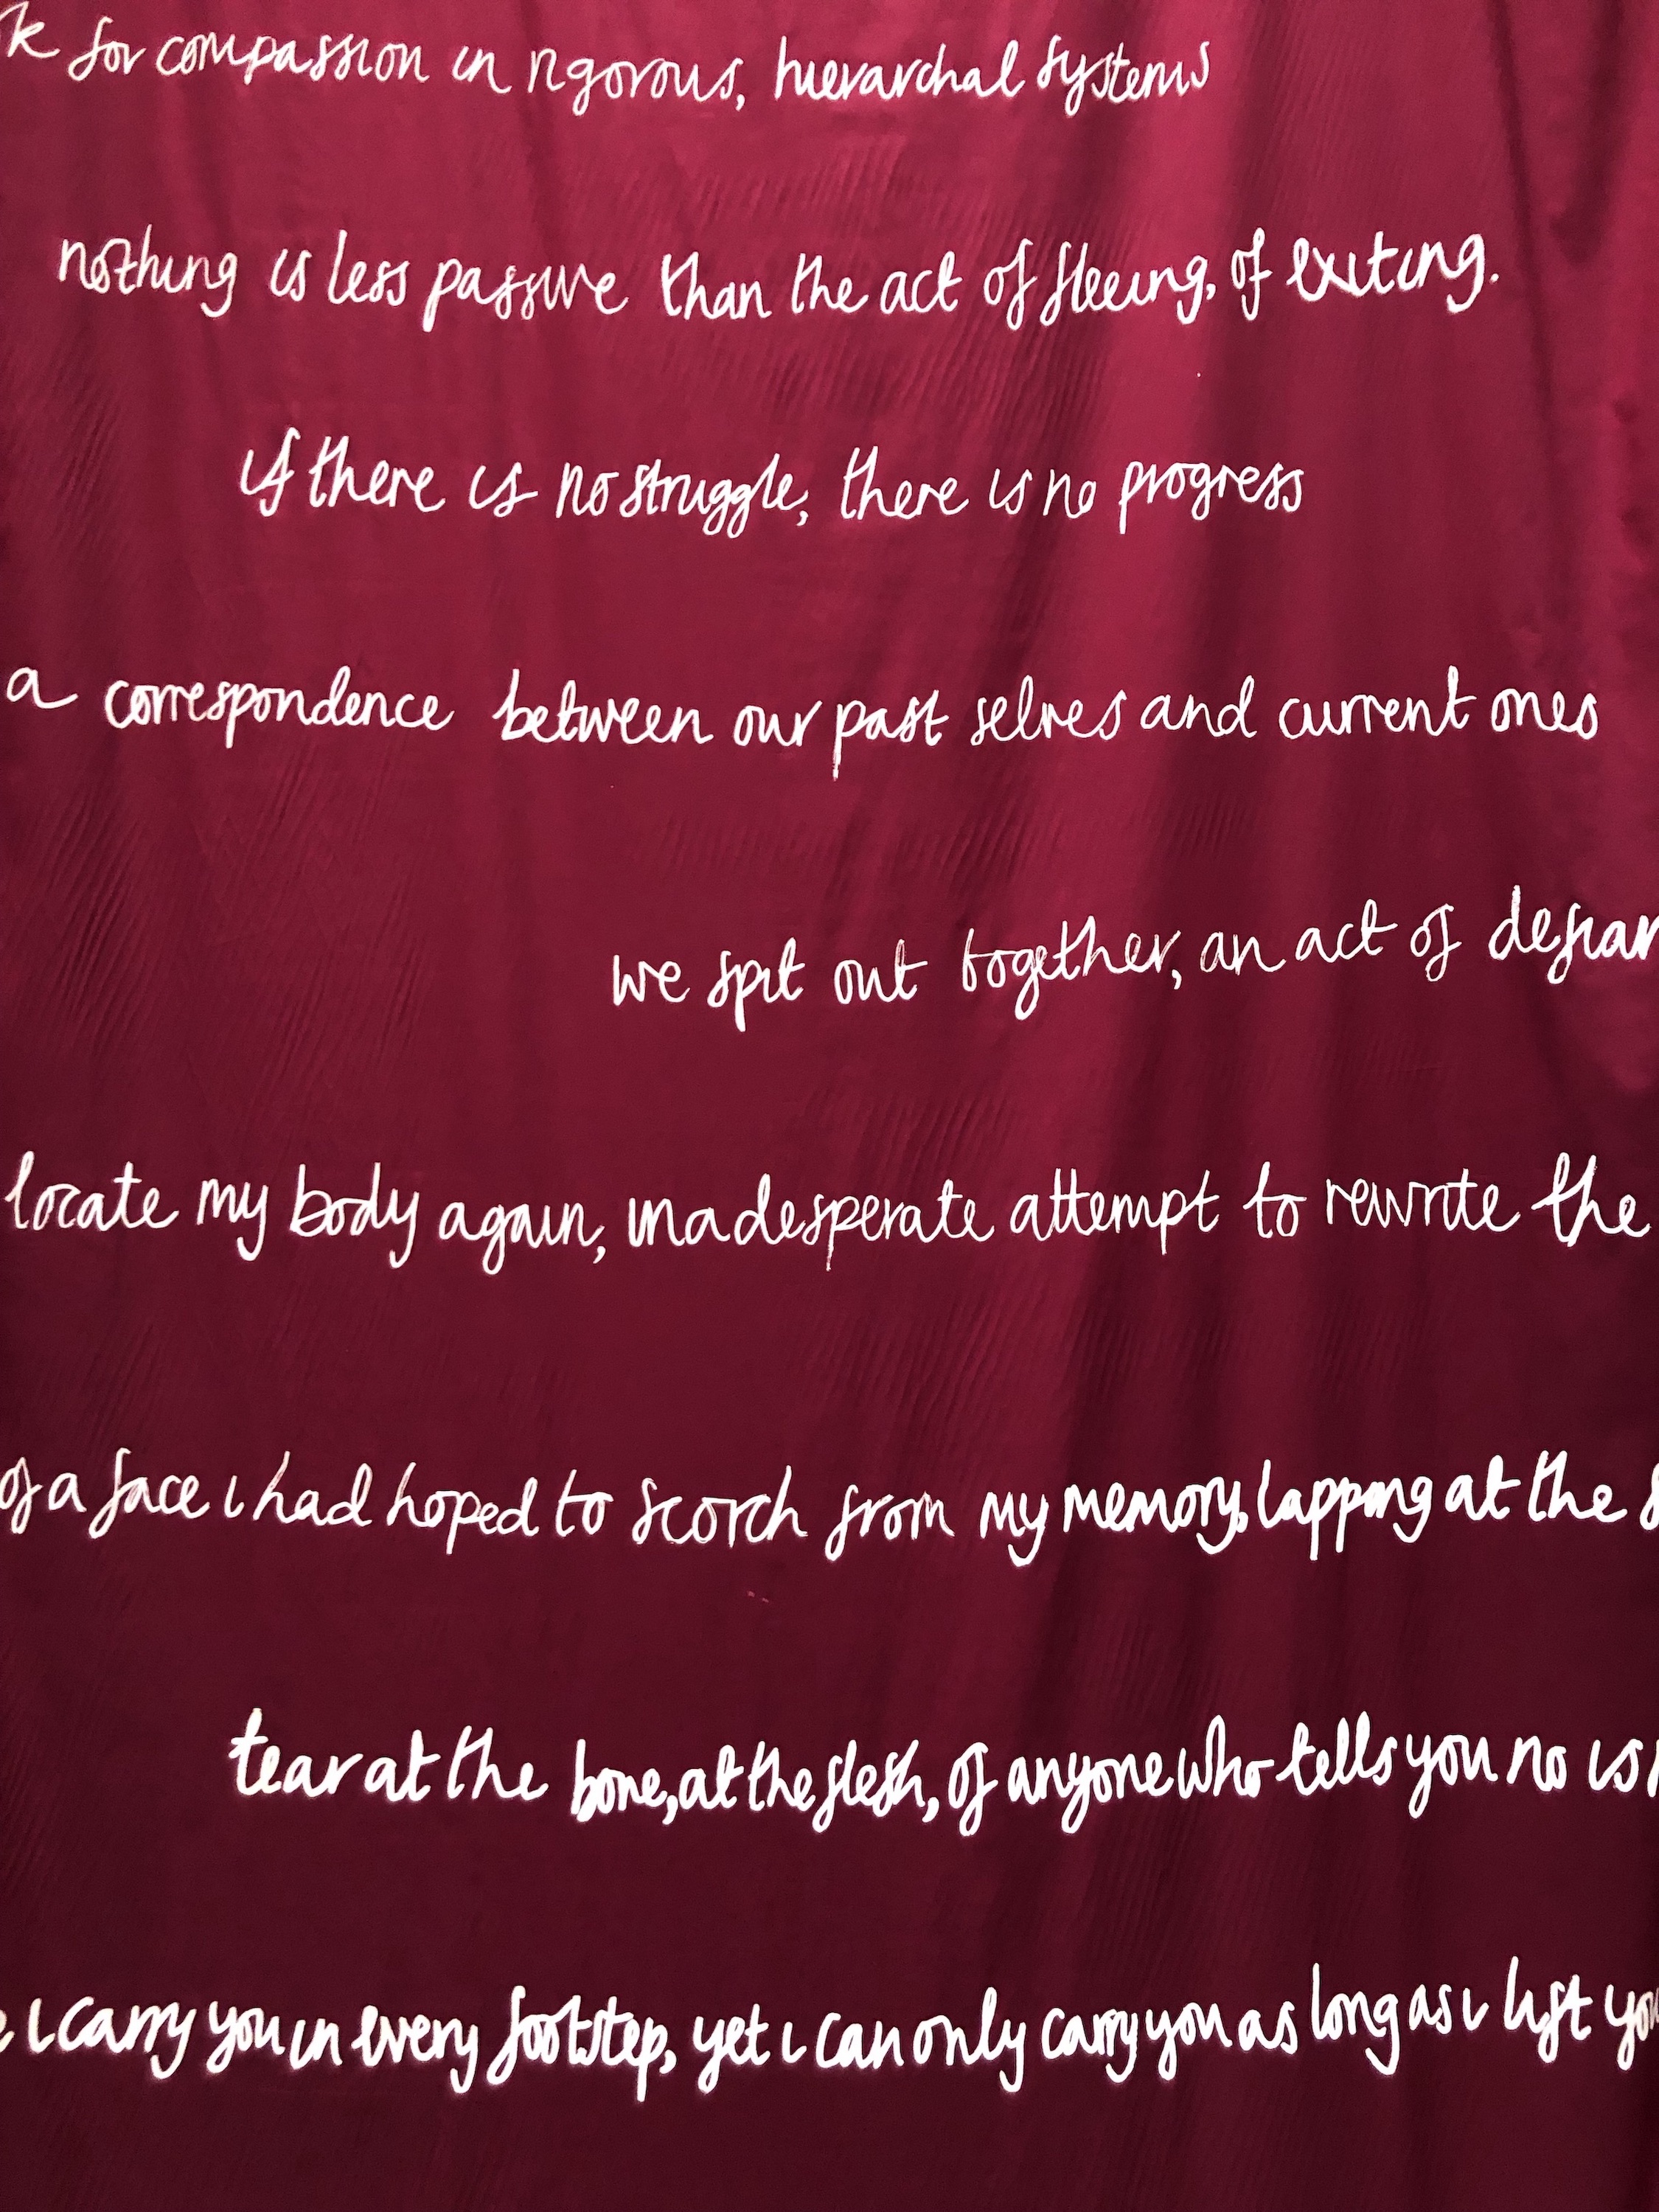 k for compassion in rigorous, hierarchal systems
nothing is less passive than the act of fleeing, of exiting.
if there is no struggle, there is no progress
a correspondence between our past selves and current ones
we spit out together, an act of defian
locate my body again, in a desperate attempt to rewrite the
of a face i had hoped to scorch from my memory, lapping at the s
tear at the bone, at the flesh, of anyone who tells you no is
i carry you in every footstep, yet i can only carry you as long as i lift you